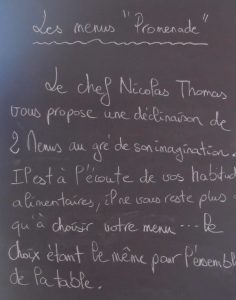 Les menus "Promenade"
Le chef Nicolas Thomas
vous propose une déclinaison de
2 Menus au gré de son imagination.
Il est à l'écoute de vos habitud
alimentaires, il ne vous reste plus
qu'à choisir votre menu... le
choix étant le même pour l'ensemble
de la table.